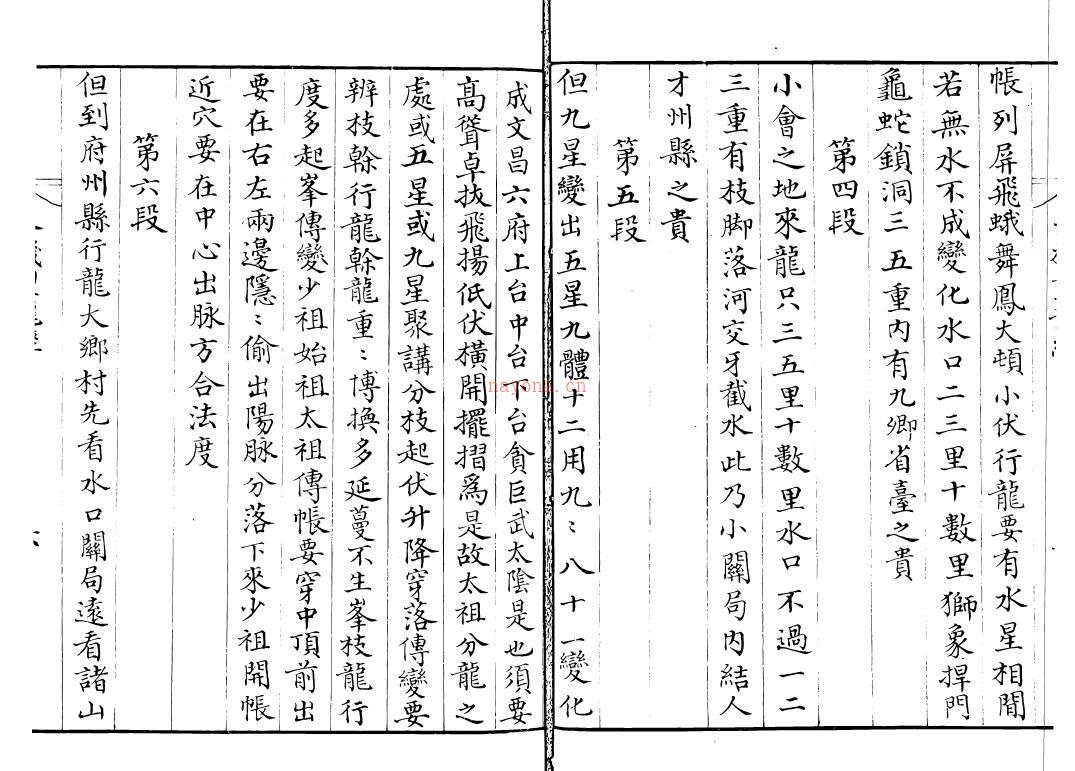 帳列屏飛蛾舞鳳大頓小伏行龍要有水星相間
若無水不成變化水口二三里十數里獅象捍門
龜蛇鎖洞三五重內有九卿省臺之貴
第四段
小會之地來龍只三五里十數里水口不過一二
三重有枝脚落河交牙截水此乃小關局內結人
才州縣之貴
第五段
但九星變出五星九體十二用九〻八十一變化
成文昌六府上台中台下台貪巨武太陰是也須要
高聳卓拔飛揚低伏橫開擺摺爲是故太祖分龍之
處或五星或九星聚講分枝起伏升降穿落傳變要
辨枝榦行龍榦龍重〻博換多延蔓不生峯枝龍行
度多起峯傳變少祖始祖太祖傳帳要穿中頂前出
要在右左兩邊隱〻偷出陽脉分落下來少祖開帳
近穴要在中心出脉方合法度
第六段
但到府州縣行龍大鄉村先看水口關局遠看諸山
nayona.cn